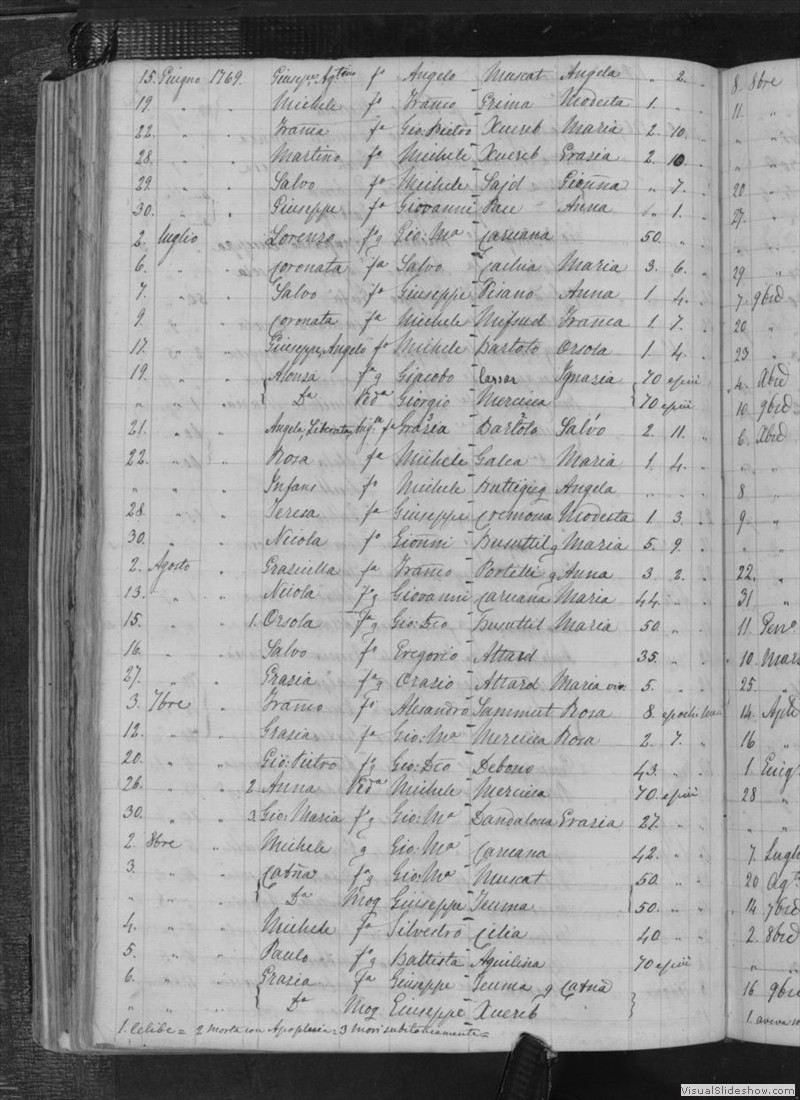 15. Giugno 1769. Giusepe, Agtino fo Angelo Muscat Angela " 2. "
19. " " Michele fo Franco Grima Modesta 1. "
22. " " Franca fa Gio: Pietro Xuereb Maria 2. 10. "
28. " " Martino fo Michele Xuereb Grasia 2. 10 "
29. " " Salvo fo Michele Sajd Gionña " 7. "
30. " " Giuseppe fo Giovanni Pace Anna " 1. "
2. Luglio " Lorenzo fo g Gio: Ma Caruana 50. " "
6. " " Coronata fa Salvo Maria 3. 6. "
7. " " Salvo fo Giuseppe Pisano Anna 1. 4. "
9. " " Coronata fa Michele Mifsud Franca 1. 7. "
17. " " Giuseppe, Angelo fo Michele Bartolo Orsola 1. 4. "
19. " " Alonsa fa g Giacobo Cassar Ignasia 70 e piu
" " " Da Veda Giorgio Mercieca 70 e piu
21. " " Angela, Liberata, fa Grasia Bartolo Salvo 2. 11. "
22. " " Rosa fa Michele Galea Maria 1. 4. "
" " " Infans fo Michele Buttigieg Angela " " "
28. " " Teresa fa Giuseppe Cremona Modesta 1. 3. "
30. " " Nicola fo Gionni Busuttil g Maria 5. 9. "
2. Agosto " Grasiella fa Franco Portelli g Anna 3. 2. "
13. " " Nicola fo g Giovanni Caruana Maria 44. " "
15. " " 1. Orsola fa g Gio: Dco Busuttil Maria 50. " "
16. " " Salvo fo Gregorio Attard 35. " "
27. " " Grasia fa g Orasio Attard Maria 5. " "
3. 7bre " Franco fo Alesandro Sammut Rosa 8. e pochi
12. " " Grasia fa Gio: Ma Mercieca Rosa 2. 7. "
20. " " Gio: Pietro fo g Gio: Dco Debono 43. " "
26. " " 2. Anna Veda Michele Mercieca 70. e piu
30. " " 3. Gio: Maria fo g Gio: Ma Dandalona Grasia 27. " "
2. 8bre " Michele g Gio: Ma Caruana 42. " "
3. " " Catña fa g Gio: Ma Muscat 50. " "
" " " Da Mog Giuseppe Teuma 50. " "
4. " " Michele fo Silvestro Cilia 40 " "
5. " " Paulo fo g Battista Aquilina 70 e piu
6. " " Grasia fa Giuseppe Teuma g Catña
" " " Da Mog Giuseppe Xuereb
1. Celibe = 2 Morta con Apoplesia = 3 Mori subitaneamente =
8. 8bre
11. "
" "
" "
20 "
27. "
" "
29 "
7. 9bre
20 "
23 "
4. Xbre
10. 9bre
6. Xbre
" "
8 "
9 "
" "
22. "
31 "
11. Geno
10. Mars
25. "
14. Aple
16 "
1. Giug
28 "
" "
7. Lugl
20 Ag
14. 7bre
2. 8bre
" "
16. 9bre
1. aveva
VisualSlideshow.com